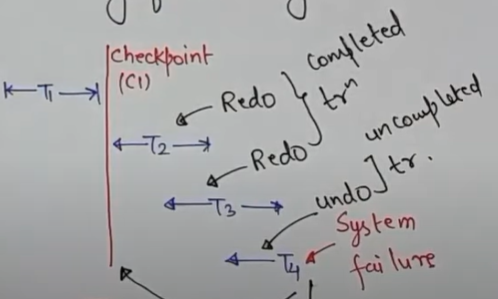 Checkpoint
(C1)
T1
Redo
completed
trn
T2
Redo
uncompleted
tr.
T3
undo
System
failure
T4